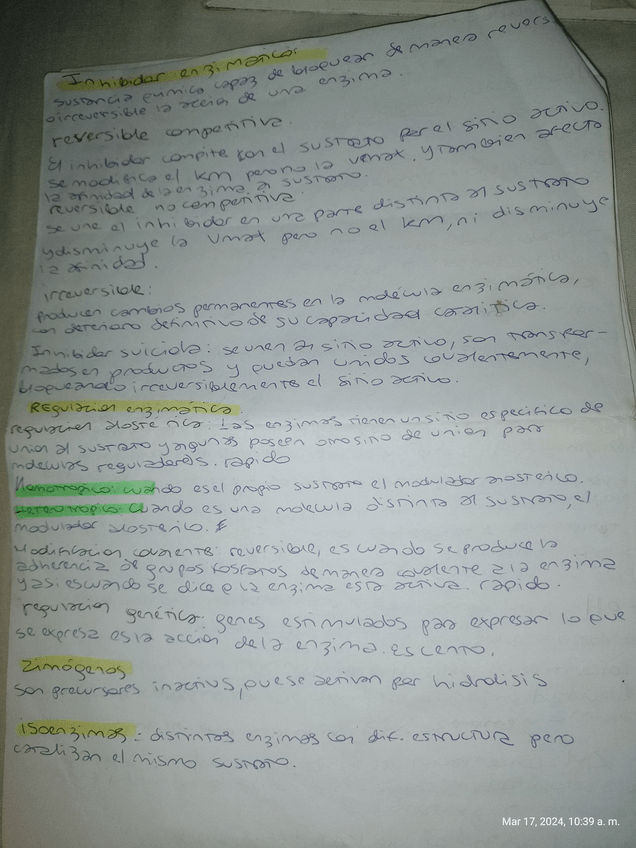 Inhibidor enzimático:
sustancia química capaz de bloquear de manera revers
o irreversible la acción de una enzima.
reversible competitiva.
El inhibidor compite con el sustrato por el sitio activo.
se modifica el KM pero no la vmax. y también afecta
la afinidad de la enzima al sustrato.
reversible no competitiva.
se une el inhibidor en una parte distinta al sustrato
y disminuye la Vmax pero no el KM, ni disminuye
la afinidad.
irreversible:
producen cambios permanentes en la molécula enzimática,
con deterioro definitivo de su capacidad catalítica.
Inhibidor suicida: se unen al sitio activo, son transfor-
mados en productos y quedan unidos covalentemente,
bloqueando irreversiblemente el sitio activo.
Regulación enzimática
regulación alostérica: Las enzimas tienen un sitio especifico de
union al sustrato y algunas poseen otro sitio de union para
moleculas reguladoras. rapido
Homotropico: cuando es el propio sustrato el modulador alosterico.
Heterotropico: Cuando es una molecula distinta al sustrato, el
modulador alosterico.
Modificacion covalente: reversible, es cuando se produce la
adherencia de grupos fosfatos de manera covalente a la enzima
y asi es cuando se dice q la enzima esta activa. rapido.
regulación genética: genes estimulados para expresar lo que
se expresa es la acción de la enzima. es lento.
Zimógenos
son precursores inactivos, que se activan por hidrolisis
isoenzimas: distintas enzimas con dif. estructura pero
catalizan el mismo sustrato.
Mar 17, 2024, 10:39 a. m.